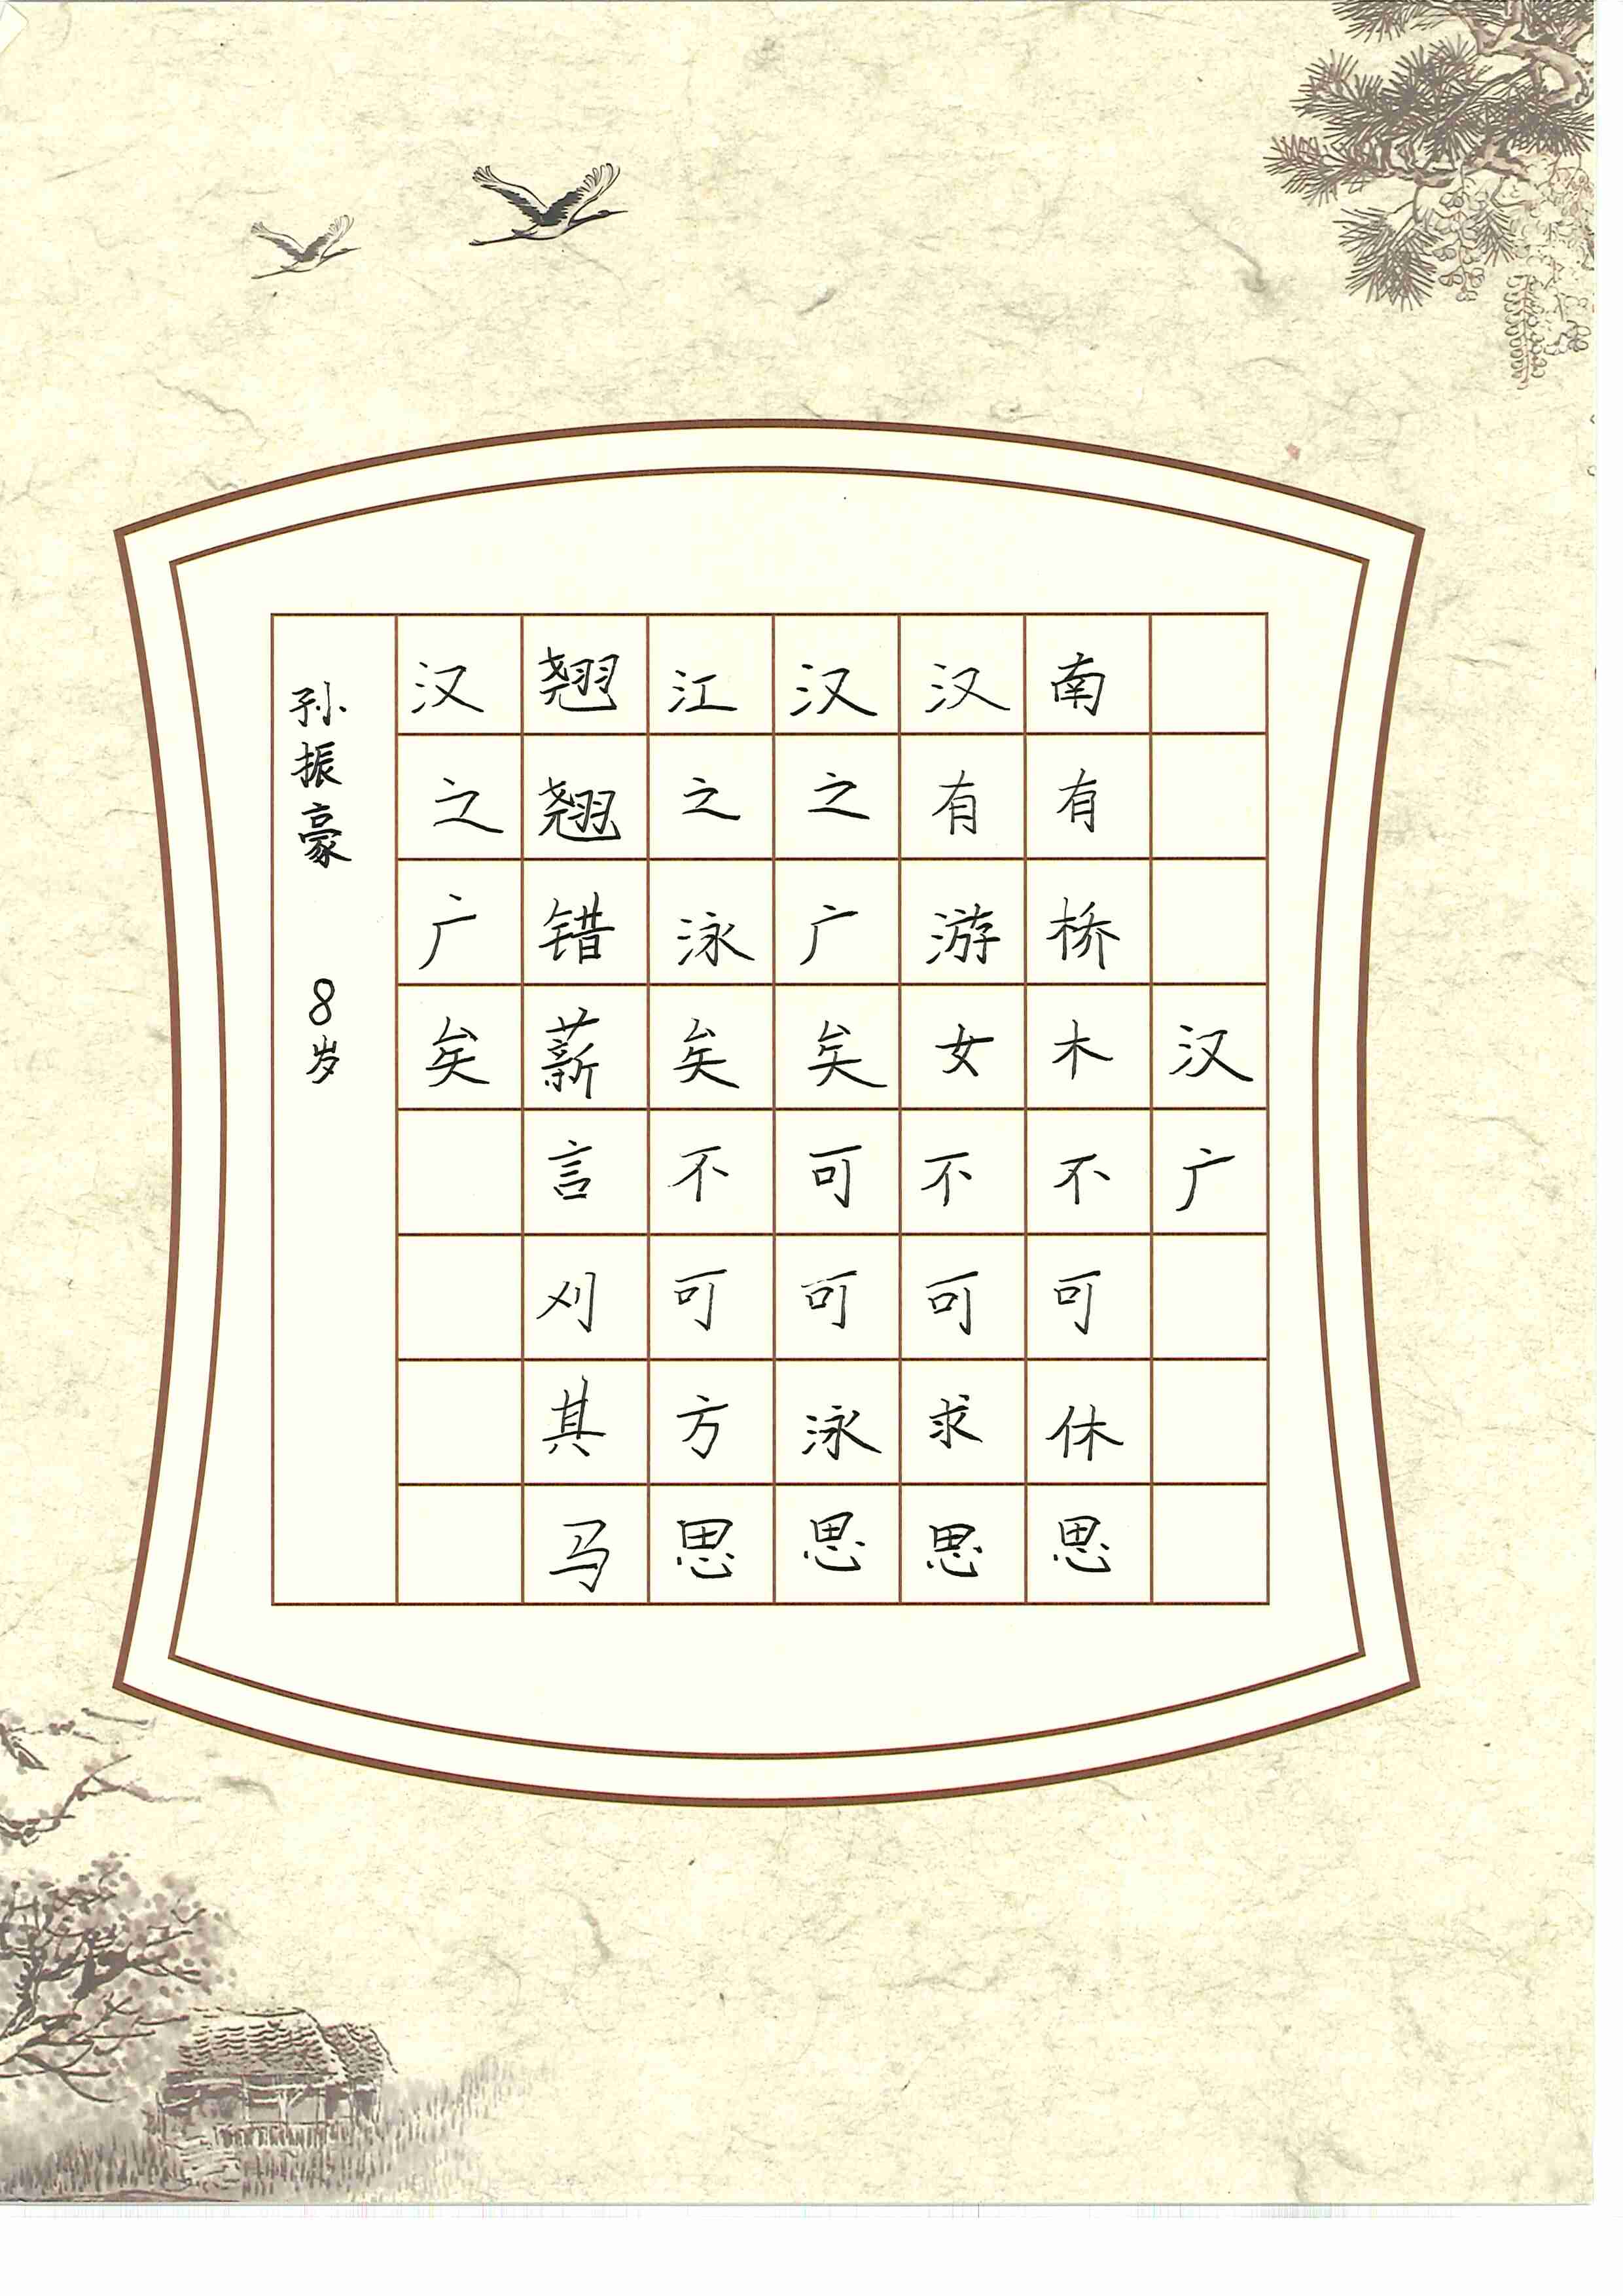 汉广
南有桥木不可休思
汉有游女不可求思
汉之广矣可可泳思
江之泳矣不可方思
翘翘错薪言刈其马
汉之广矣
孙振豪 8岁